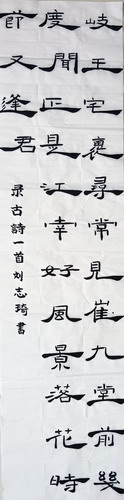 岐王宅裏尋常見崔九堂前幾
度聞正是江幸好風景落花時
節又逢君
录古詩一首刘志琦書